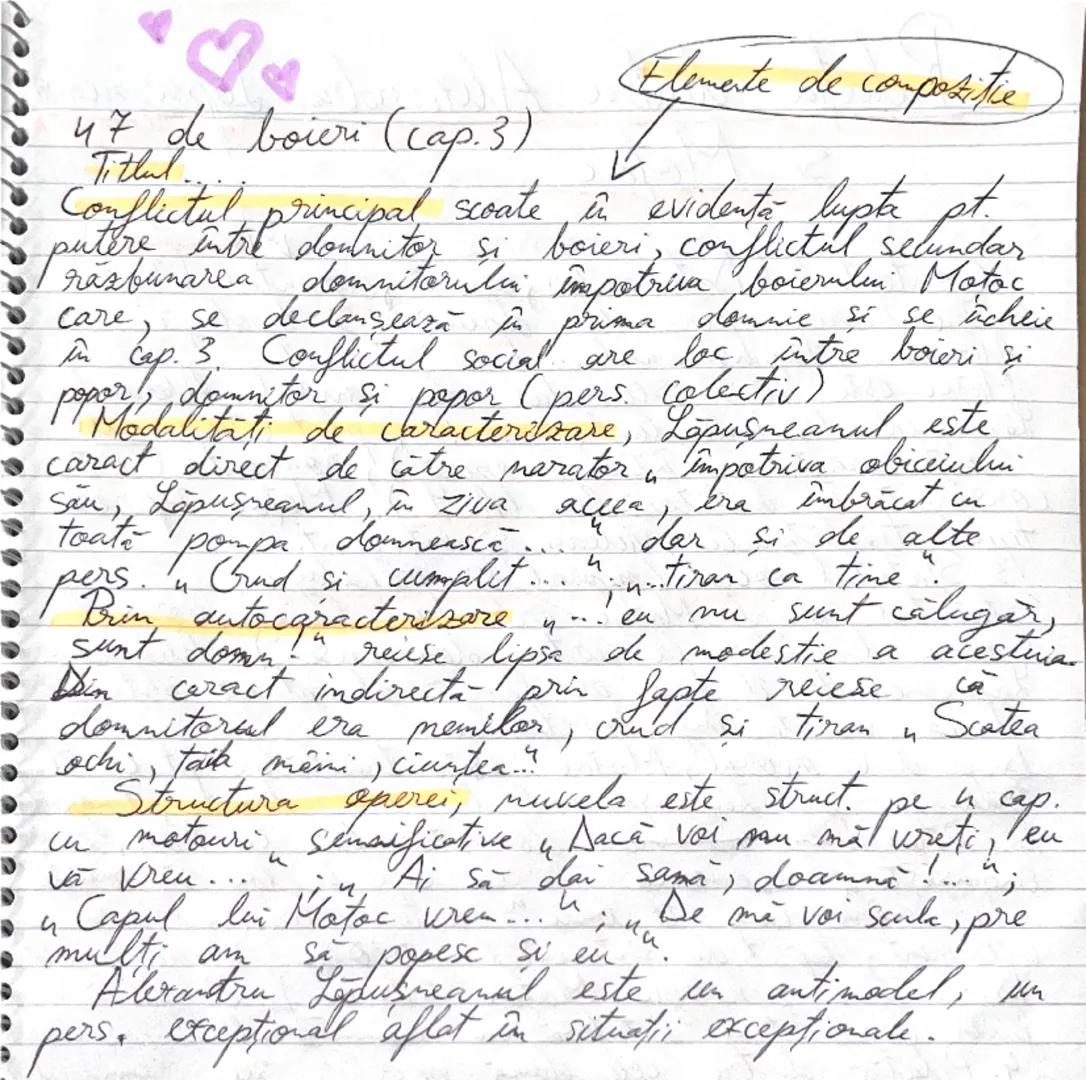 Elemente de compoziție
47 de boieri (cap. 3)
Titlul....
Conflictul principal scoate în evidență lupta pt.
putere între domnitor și boieri, conflictul secundar
răzbunarea domnitorului împotriva boierului Moțoc
care, se declanșează în prima domnie și se încheie
în cap. 3 Conflictul social are loc între boieri și
popor, domnitor și popor (pers. colectiv)
Modalități de caracterizare, Lăpușneanul este
caract direct de către narator „împotriva obiceiului
său, Lăpușneanul, în ziva aceea, era îmbrăcat cu
toată pompa domnească..." dar și de alte
pers. „Crud și cumplit..."; „...tiran ca tine".
Prin autocaracterizare „... eu nu sunt călugăr,
sunt domn!" reiese lipsa de modestie a acestuia.
Din caract indirectă prin fapte reiese că
domnitorul era nemilos, crud și tiran „Scotea
ochi, tăia mâini, ciuntea..."
Structura operei, nuvela este struct. pe 4 cap.
cu motouri semnificative „Dacă voi nu mă vreți, eu
vă vreu..."; „Ai să dai samă, doamnă!...";
„Capul lui Moțoc vrem..."; „De mă voi scula, pre
mulți am să popesc și eu".
Alexandru Lăpușneanul este un antimodel, un
pers. excepțional aflat în situații excepționale.